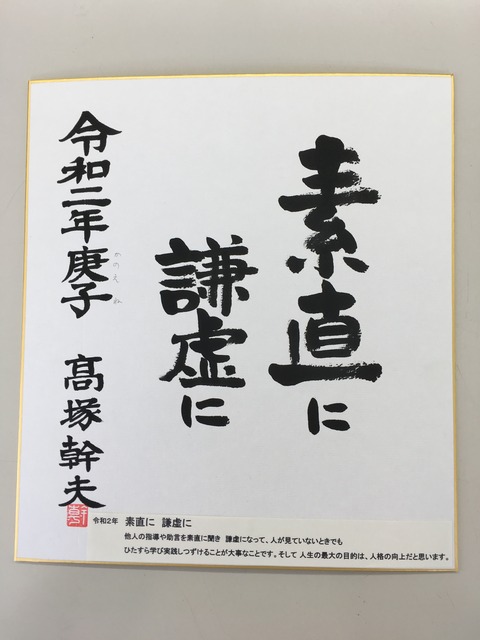 素直に
謙虚に
令和二年庚子 髙塚幹夫
かのえ ね
令和2年 素直に 謙虚に
他人の指導や助言を素直に聞き 謙虚になって、人が見ていないときでも
ひたすら学び実践しつずけることが大事なことです。そして 人生の最大の目的は、人格の向上だと思います。